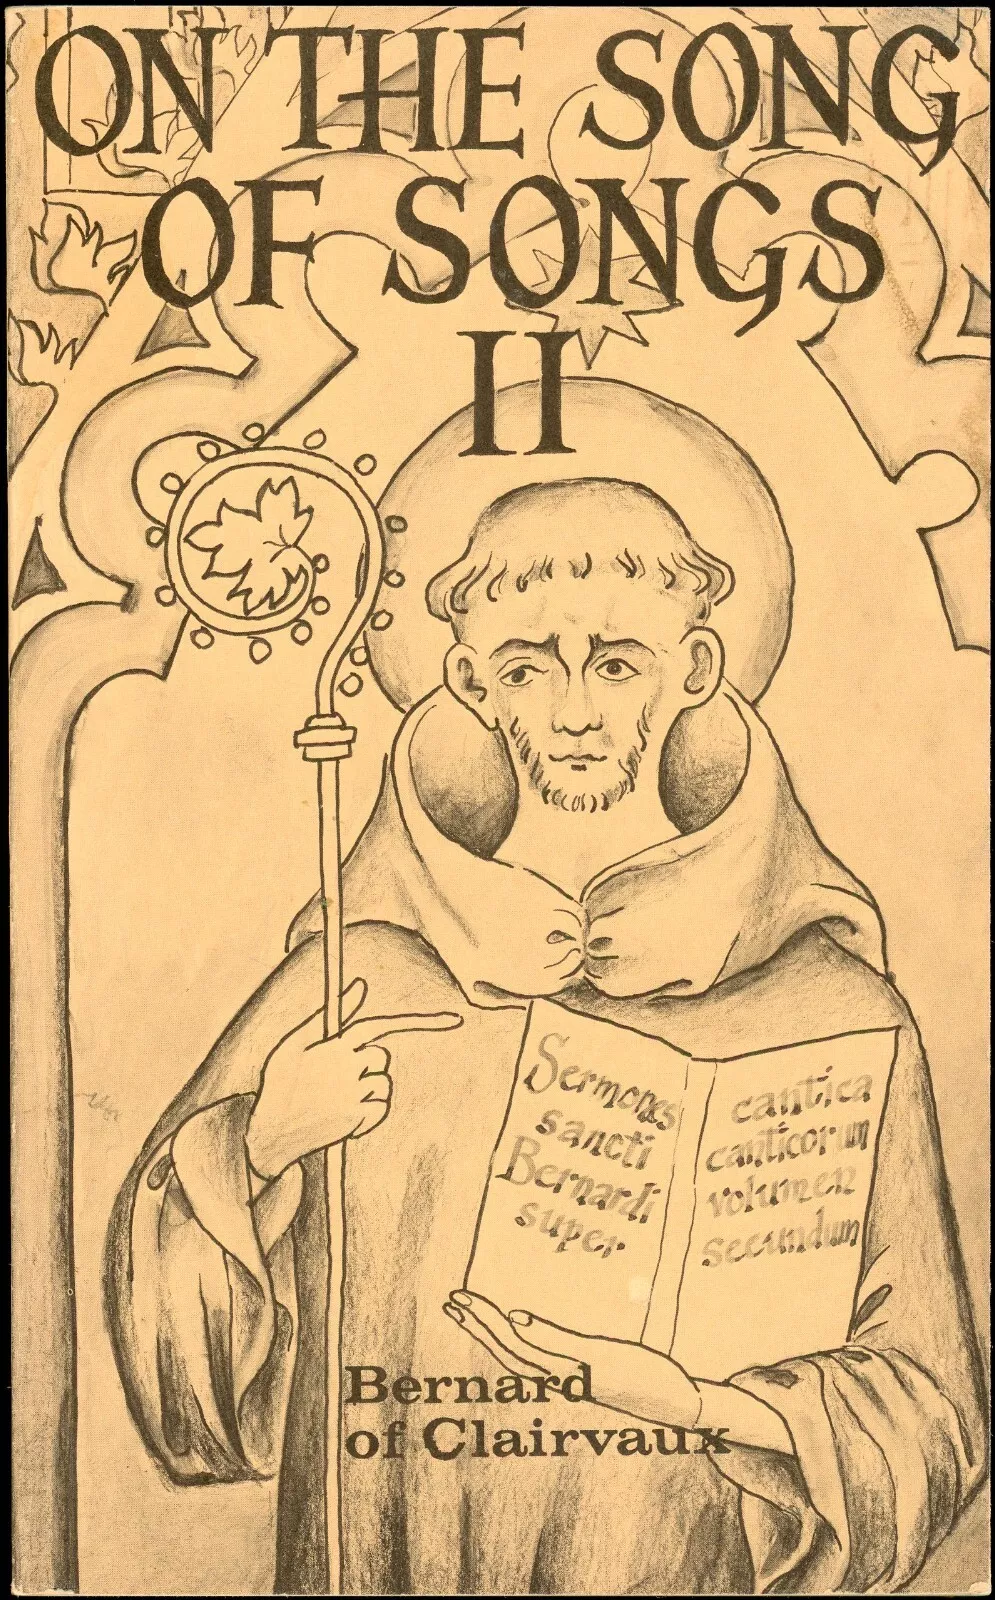 ON THE SONG
OF SONGS
II
Sermones
sancti
Bernardi
super
cantica
canticorum
volumen
secundum
Bernard
of Clairvaux